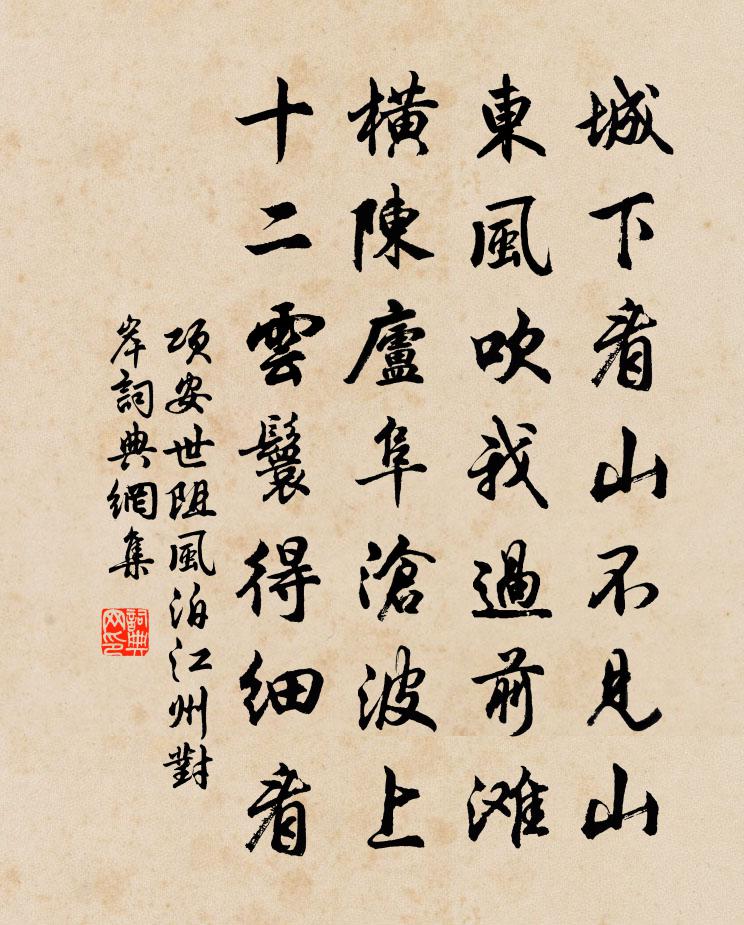 城下看山不見山
東風吹我過前滩
橫陳廬阜滄波上
十二雲鬟得細看
項安世阻風泊江州對
岸詞典網集
詞典网印